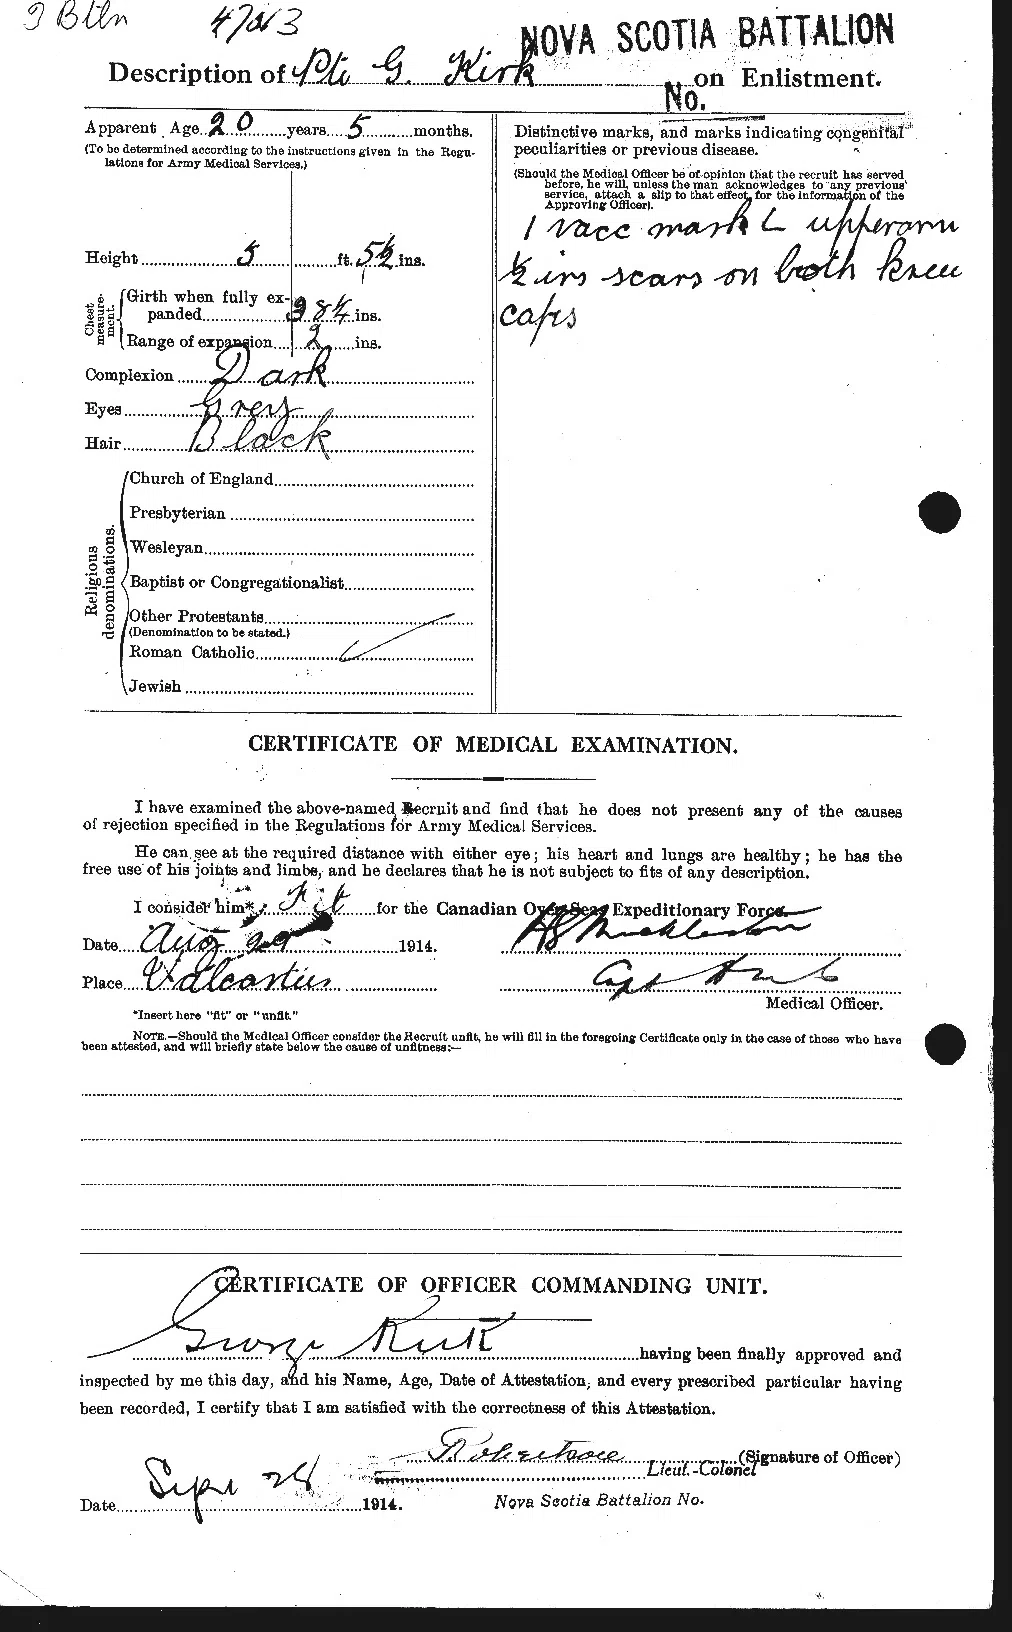 9 Btln 47013
NOVA SCOTIA BATTALION
Description of Pte G. Kirk on Enlistment.
No.
Apparent Age 20 years 5 months.
(To be determined according to the instructions given in the Regu-
lations for Army Medical Services.)
Height 5 ft. 5½ ins.
Chest measure-ment.
Girth when fully ex-
panded 38½ ins.
Range of expansion 2 ins.
Complexion Dark
Eyes Grey
Hair Black
Religious denominations.
Church of England
Presbyterian
Wesleyan
Baptist or Congregationalist
Other Protestants
(Denomination to be stated.)
Roman Catholic ✓
Jewish
Distinctive marks, and marks indicating congenital
peculiarities or previous disease.
(Should the Medical Officer be of opinion that the recruit has served
before, he will, unless the man acknowledges to any previous
service, attach a slip to that effect, for the information of the
Approving Officer).
1 vacc mark L upperarm
½ ins scars on both knee
caps
CERTIFICATE OF MEDICAL EXAMINATION.
I have examined the above-named Recruit and find that he does not present any of the causes
of rejection specified in the Regulations for Army Medical Services.
He can see at the required distance with either eye; his heart and lungs are healthy; he has the
free use of his joints and limbs, and he declares that he is not subject to fits of any description.
I consider him* Fit for the Canadian Over-Seas Expeditionary Force.
Date Aug 29 1914.
Place Valcartier
Capt
Medical Officer.
*Insert here "fit" or "unfit."
NOTE.—Should the Medical Officer consider the Recruit unfit, he will fill in the foregoing Certificate only in the case of those who have
been attested, and will briefly state below the cause of unfitness:—
CERTIFICATE OF OFFICER COMMANDING UNIT.
George Kirk having been finally approved and
inspected by me this day, and his Name, Age, Date of Attestation, and every prescribed particular having
been recorded, I certify that I am satisfied with the correctness of this Attestation.
(Signature of Officer)
Lieut.-Colonel
Date Sept 24 1914.
Nova Scotia Battalion No.